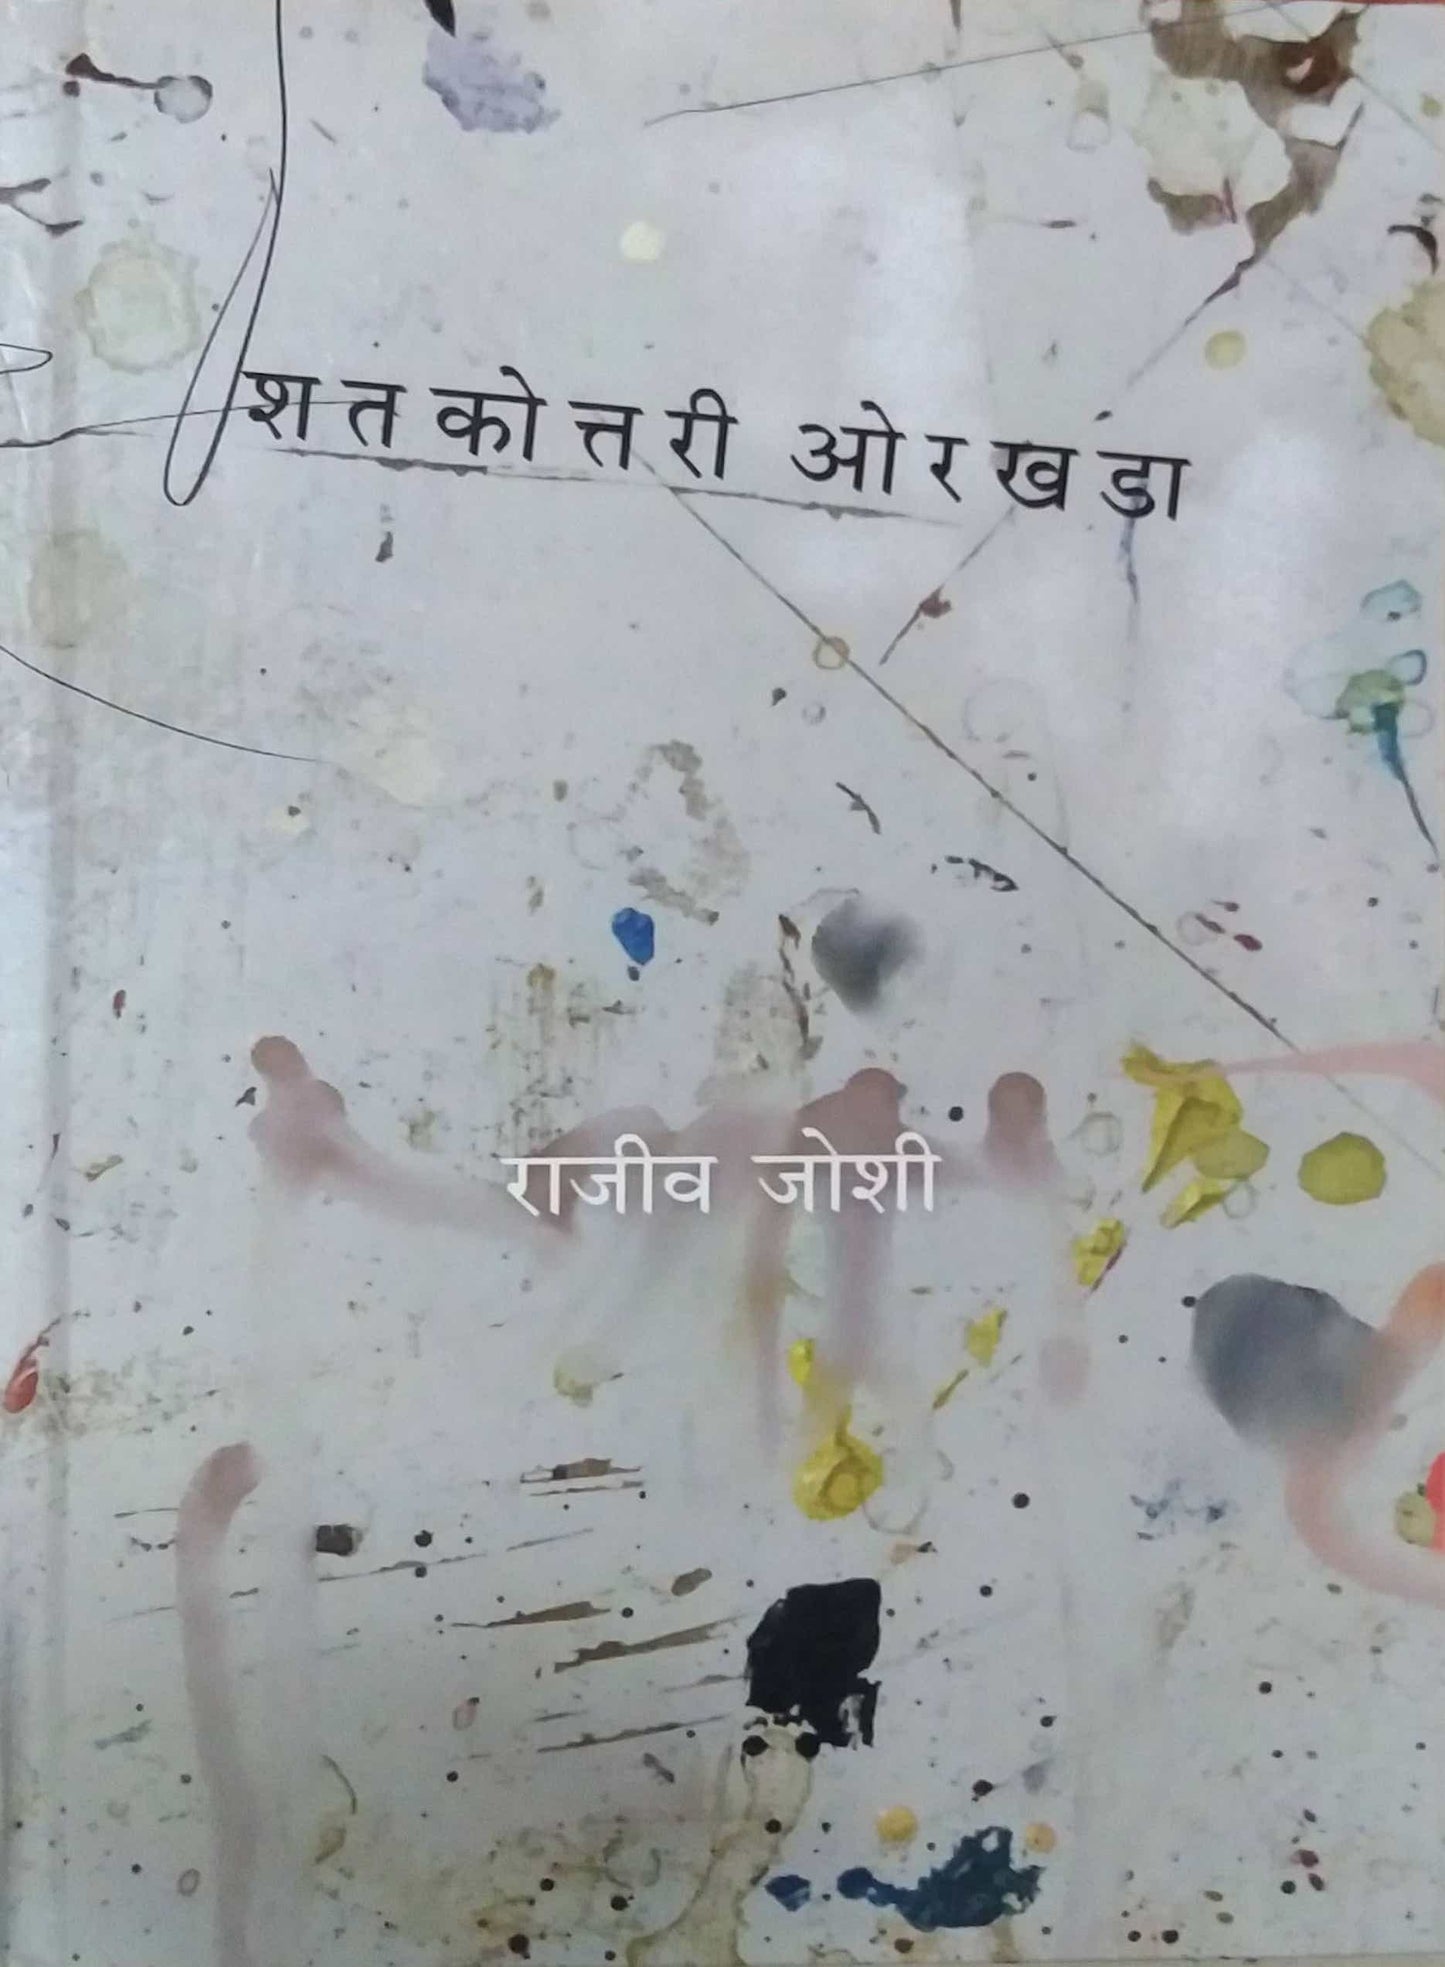 शतकोत्तरी ओरखडा
राजीव जोशी